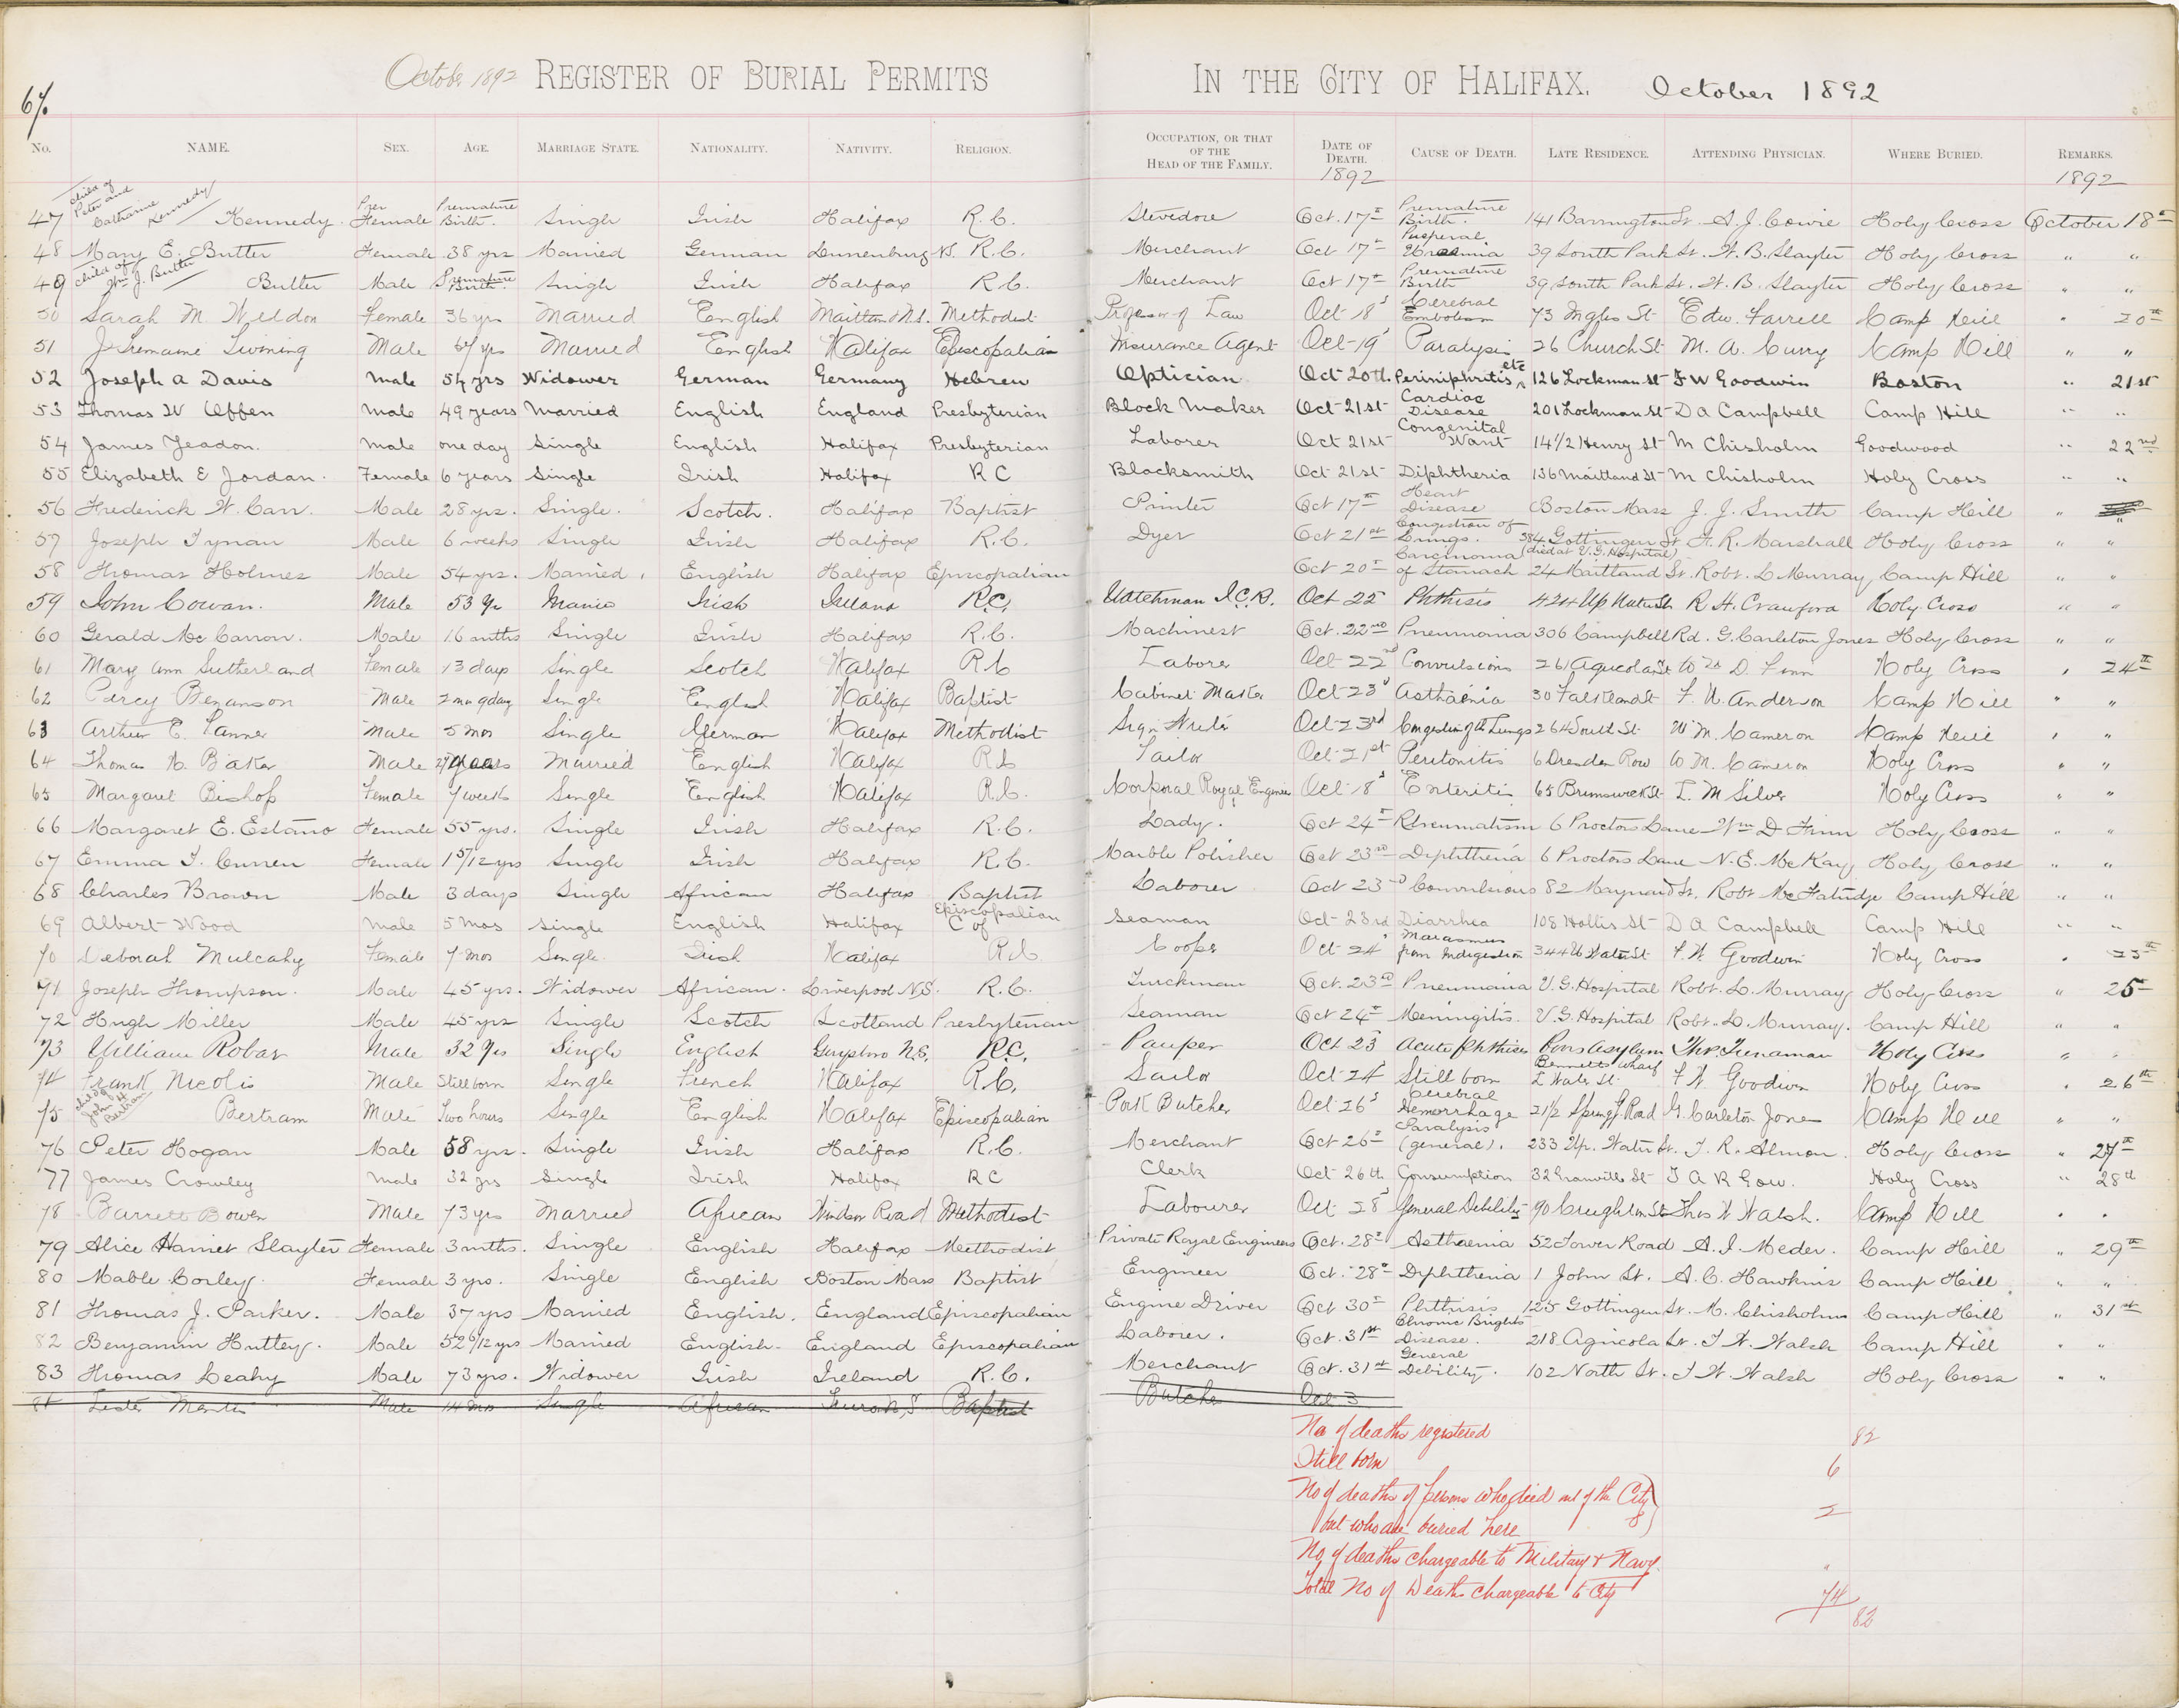 October 1892 REGISTER OF BURIAL PERMITS IN THE CITY OF HALIFAX. October 1892
No. NAME. SEX. AGE. MARRIAGE STATE. NATIONALITY. NATIVITY. RELIGION. OCCUPATION, OR THAT OF THE HEAD OF THE FAMILY. DATE OF DEATH. CAUSE OF DEATH. LATE RESIDENCE. ATTENDING PHYSICIAN. WHERE BURIED. REMARKS.
1892 1892
47 child of Peter and Catharine Kennedy Kennedy. Female Premature Birth. Single Irish Halifax R.C. Stevedore Oct. 17th Premature Birth. 141 Barrington St. A. J. Cowie Holy Cross October 18th
48 Mary E. Butler Female 38 yrs Married German Lunenburg N.S. R.C. Merchant Oct 17th 39 South Park St. W. B. Slayter Holy Cross " "
49 child of Wm J. Butler Butler Male Premature Birth. Single Irish Halifax R.C. Merchant Oct 17th Premature Birth 39 South Park St. W. B. Slayter Holy Cross " "
50 Sarah M. Weldon Female 36 yrs Married English Maitland N.S. Methodist Professor of Law Oct 18 Cerebral Embolism 73 Inglis St Edw. Farrell Camp Hill " 20th
51 J Tremaine Twining Male 67 yrs Married English Halifax Episcopalian Insurance Agent Oct 19 Paralysis 26 Church St M. A. Curry Camp Hill " "
52 Joseph A Davis Male 54 yrs Widower German Germany Hebrew Optician Oct 20th. Periniphritis etc 126 Lockman St F W Goodwin Boston " 21st
53 Thomas W Offen Male 49 years Married English England Presbyterian Block Maker Oct 21st Cardiac Disease 201 Lockman St D A Campbell Camp Hill " "
54 James Yeadon. Male one day Single English Halifax Presbyterian Laborer Oct 21st Congenital Want 14 1/2 Henry St M Chisholm Goodwood " 22nd
55 Elizabeth E Jordan. Female 6 years Single Irish Halifax R C Blacksmith Oct 21st Diphtheria 136 Maitland St M Chisholm Holy Cross " "
56 Frederick W. Carr. Male 28 yrs. Single. Scotch. Halifax Baptist Printer Oct 17th Heart Disease Boston Mass J. J. Smith Camp Hill " "
57 Joseph Tynan Male 6 weeks Single Irish Halifax R.C. Dyer Oct 21st Congestion of Lungs. 584 Gottingen St F. R. Marshall Holy Cross " "
58 Thomas Holmes Male 54 yrs. Married. English Halifax Episcopalian Oct 20th Carcinoma of Stomach (died at V.G. Hospital) 24 Maitland St. Robt. L. Murray Camp Hill " "
59 John Cowan. Male 53 Yr Irish Ireland R.C. Watchman I.C.R. Oct 22 Phthisis 424 Up Water St R. H. Crawford Holy Cross " "
60 Gerald McCarron. Male 16 mths Single Irish Halifax R.C. Machinest Oct. 22nd Pneumonia 306 Campbell Rd. G. Carleton Jones Holy Cross " "
61 Mary Ann Sutherland Female 13 days Single Scotch Halifax R.C Laborer Oct 22nd Convulsions 261 Agricola St Wm D. Finn Holy Cross " 24th
62 Percy Benanson Male 2 mo 9 day Single English Halifax Baptist Cabinet Maker Oct 23 Asthenia 30 Falkland St F. U. Anderson Camp Hill " "
63 Arthur E. Tanner Male 5 mos Single German Halifax Methodist Sign Writer Oct 23rd Congestion of the Lungs 264 South St W M. Cameron Camp Hill " "
64 Thomas H. Baker Male 27 years Married English Halifax R.C Tailor Oct 21st Peritonitis 6 Dresden Row W M. Cameron Holy Cross " "
65 Margaret Bishop Female 7 weeks Single English Halifax R.C. Corporal Royal Engineers Oct 18 Enteritis 65 Brunswick St L. M Silver Holy Cross " "
66 Margaret E. Estano Female 55 yrs. Single Irish Halifax R.C. Lady. Oct 24th Rheumatism 6 Proctors Lane Wm D Finn Holy Cross " "
67 Emma J. Curren Female 1 5/12 yrs Single Irish Halifax R.C. Marble Polisher Oct 23rd Diphtheria 6 Proctors Lane N. E. McKay Holy Cross " "
68 Charles Brown Male 3 days Single African Halifax Baptist Laborer Oct 23rd Convulsions 82 Maynard St. Robt McFatridge Camp Hill " "
69 Albert Wood Male 5 Mos Single English Halifax Episcopalian C of Seaman Oct 23rd Diarrhea 108 Hollis St D A Campbell Camp Hill " "
70 Deborah Mulcahy Female 7 mos Single. Irish Halifax R.C. Cooper Oct 24 Marasmus from Indigestion 344 U Water St F. W. Goodwin Holy Cross " 25th
71 Joseph Thompson. Male 45 yrs. Widower African. Liverpool N.S. R.C. Truckman Oct. 23rd Pneumonia V.G. Hospital Robt. L. Murray Holy Cross " 25th
72 Hugh Miller Male 45 yrs Single Scotch Scotland Presbyterian Seaman Oct 24th Meningitis. V.G. Hospital Robt. L. Murray. Camp Hill " "
73 William Robar Male 32 Yrs Single English Guysboro N.S. R.C. Pauper Oct 23 Acute Phthisis Poors Asylum Thos. Trenaman Holy Cross " "
74 Frank Nicolis Male Stillborn Single French Halifax R.C. Sailor Oct 24 Still born Bennetts Wharf L Water St. F. W. Goodwin Holy Cross " 26th
75 child of John H Bertram Bertram Male Two hours Single English Halifax Episcopalian Pork Butcher Oct 26 Cerebral Hemorrhage 21 1/2 Spring G. Road G. Carleton Jones Camp Hill " "
76 Peter Hogan Male 58 yrs. Single Irish Halifax R.C. Merchant Oct 26th Paralysis (general). 233 Up. Water St. T. R. Almon. Holy Cross " 27th
77 James Crowley Male 32 yrs Single Irish Halifax R C Clerk Oct 26th Consumption 32 Granville St J A R Gow. Holy Cross " 28th
78 Barrett Bowen Male 73 yrs Married African Windsor Road Methodist Labourer Oct 28 General Debility 90 Creighton St Thos W Walsh. Camp Hill " "
79 Alice Harriet Slayter Female 3 mths. Single English Halifax Methodist Private Royal Engineers Oct. 28th Asthaenia 52 Tower Road A. I. Mader. Camp Hill " 29th
80 Mable Corley. Female 3 yrs. Single English Boston Mass Baptist Engineer Oct. 28th Diphtheria 1 John St. A. C. Hawkins Camp Hill " "
81 Thomas J. Parker. Male 37 yrs Married English. England Episcopalian Engine Driver Oct 30th Phthisis 125 Gottingen St. M. Chisholm Camp Hill " 31st
82 Benjamin Huttey. Male 52 6/12 yrs Married English. England Episcopalian Laborer. Oct. 31st Chronic Brights Disease. 218 Agricola St. T. W. Walsh Camp Hill " "
83 Thomas Leahy Male 73 yrs. Widower Irish Ireland R.C. Merchant Oct. 31st General Debility. 102 North St. T W. Walsh Holy Cross " "
84 Male 14 mos Single African Truro N.S. Baptist Butcher Oct 3
No of deaths registered 82
Still born 6
No of deaths of persons who died out of the City
but who are buried here 2
No of deaths chargeable to Military & Navy. "
Total No of Deaths chargeable to City 74
82